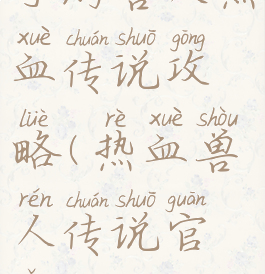 xuè chuán shuō gōng
血传说攻
lüè rè xuè shòu
略(热血兽
rén chuán shuō guān
人传说官